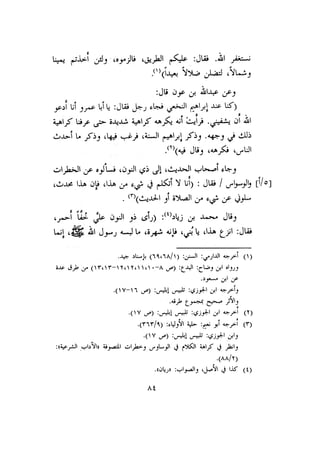 نستغفر الله. فقال: عليكم الطريق، فالزموه، ولئن أخذتم يمينا
وشمالاً، لتضلن ضلالاً بعيداً)(١).
وعن عبدالله بن عون قال:
(كنا عند إبراهيم النخعي فجاء رجل فقال: يا أبا عمرو أنا أدعو
الله أن يشفيني. فرأيتُ أنه يكرهه كراهية شديدة حتى عرفنا كراهية
ذلك في وجهه. وذكر إبراهيم السنة، فرغب فيها، وذكر ما أحدث
الناس، فكرهه، وقال فيه)(٢).
وجاء أصحاب الحديث، إلى ذي النون، فسألوه عن الخطرات
[٥/أ] والوسواس / فقال: (أنا لا أتكلم في شيء من هذا، فإن هذا محدث،
سلوني عن شيء من الصلاة أو الحديث)(٣).
وقال محمد بن زياد(٤): (رأى ذو النون عليَّ خُفّاً أحمر،
فقال: انزع هذا، يا بُني، فإنه شهرة، ما لبسه رسول الله ﷺ، إنما
(١) أخرجه الدارمي: السنن: (٦٨/١، ٦٩) بإسناد جيد.
ورواه ابن وضاح: البدع: (ص ٨-١٠، ١١، ١٢، ١٢-١٣، ١٣) من طرق عدة
عن ابن مسعود.
وأخرجه ابن الجوزي: تلبيس إبليس: (ص ١٦-١٧).
والأثر صحيح بمجموع طرقه.
(٢) أخرجه ابن الجوزي: تلبيس إبليس: (ص ١٧).
(٣) أخرجه أبو نعيم: حلية الأولياء: (٣٦٣/٩).
وابن الجوزي: تلبيس إبليس: (ص ١٧).
وانظر في كراهة الكلام في الوساوس وخطرات المتصوفة «الآداب الشرعية»:
(٨٨/٢).
(٤) كذا في الأصل، والصواب: «ريان».
٨٤